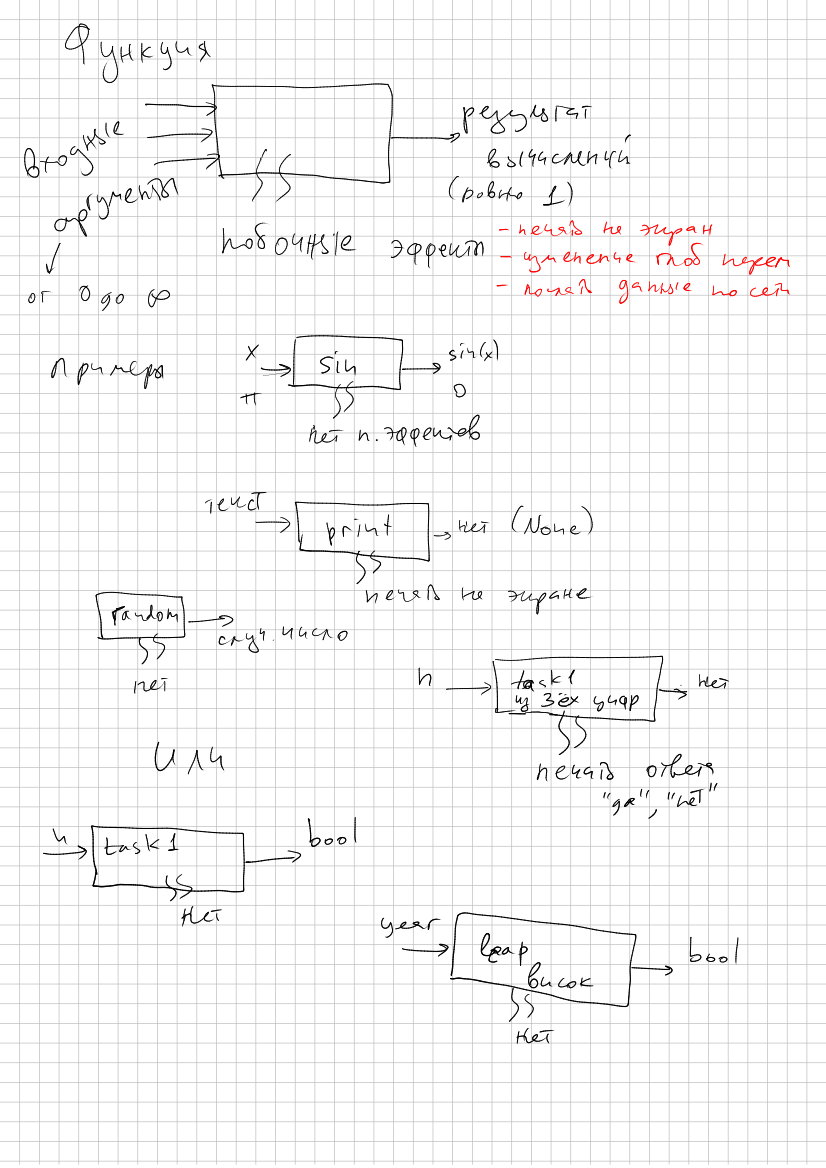 Функция
входные
аргументы
от 0 до ∞
результат
вычислений
(ровно 1)
побочные эффекты
- печать на экран
- изменение глоб перем
- послать данные по сети
примеры
x
π
sin
sin(x)
0
нет п. эффектов
текст
print
нет (None)
печать на экране
random
случ. число
нет
n
task1
из 3ёх цифр
нет
печать ответа
"да", "нет"
или
n
task1
bool
нет
year
leap
висок
bool
нет